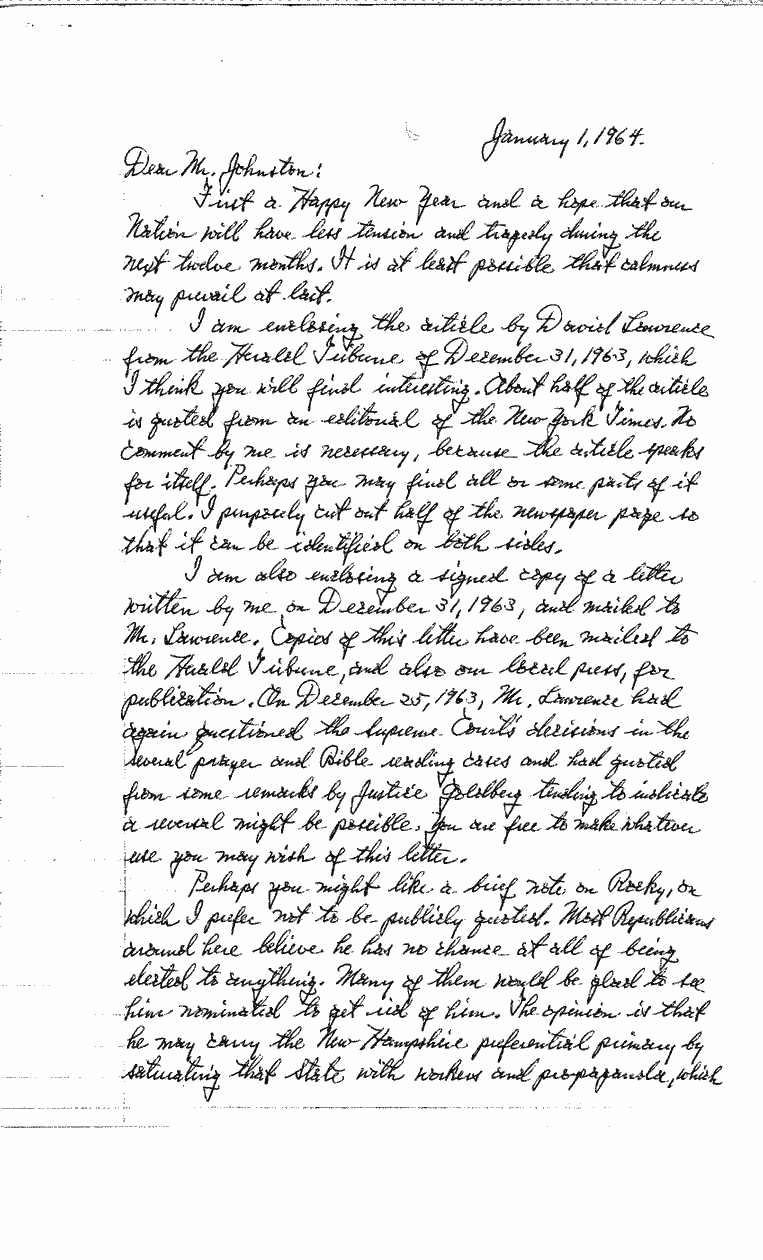 January 1, 1964.
Dear Mr. Johnston:
First a Happy New Year and a hope that our
Nation will have less tension and tragedy during the
next twelve months. It is at least possible that calmness
may prevail at last.
I am enclosing the article by David Lawrence
from the Herald Tribune of December 31, 1963, which
I think you will find interesting. About half of the article
is quoted from an editorial of the New York Times. No
comment by me is necessary, because the article speaks
for itself. Perhaps you may find all or some parts of it
useful. I purposely cut out half of the newspaper page so
that it can be identified on both sides.
I am also enclosing a signed copy of a letter
written by me on December 31, 1963, and mailed to
Mr. Lawrence. Copies of this letter have been mailed to
the Herald Tribune, and also our local press, for
publication. On December 25, 1963, Mr. Lawrence had
again questioned the Supreme Court's decisions in the
several prayer and Bible reading cases and had quoted
from some remarks by Justice Goldberg tending to indicate
a reversal might be possible. You are free to make whatever
use you may wish of this letter.
Perhaps you might like a brief note on Rocky, on
which I prefer not to be publicly quoted. Most Republicans
around here believe he has no chance at all of being
elected to anything. Many of them would be glad to see
him nominated to get rid of him. The opinion is that
he may carry the New Hampshire preferential primary by
saturating that State with workers and propaganda, which